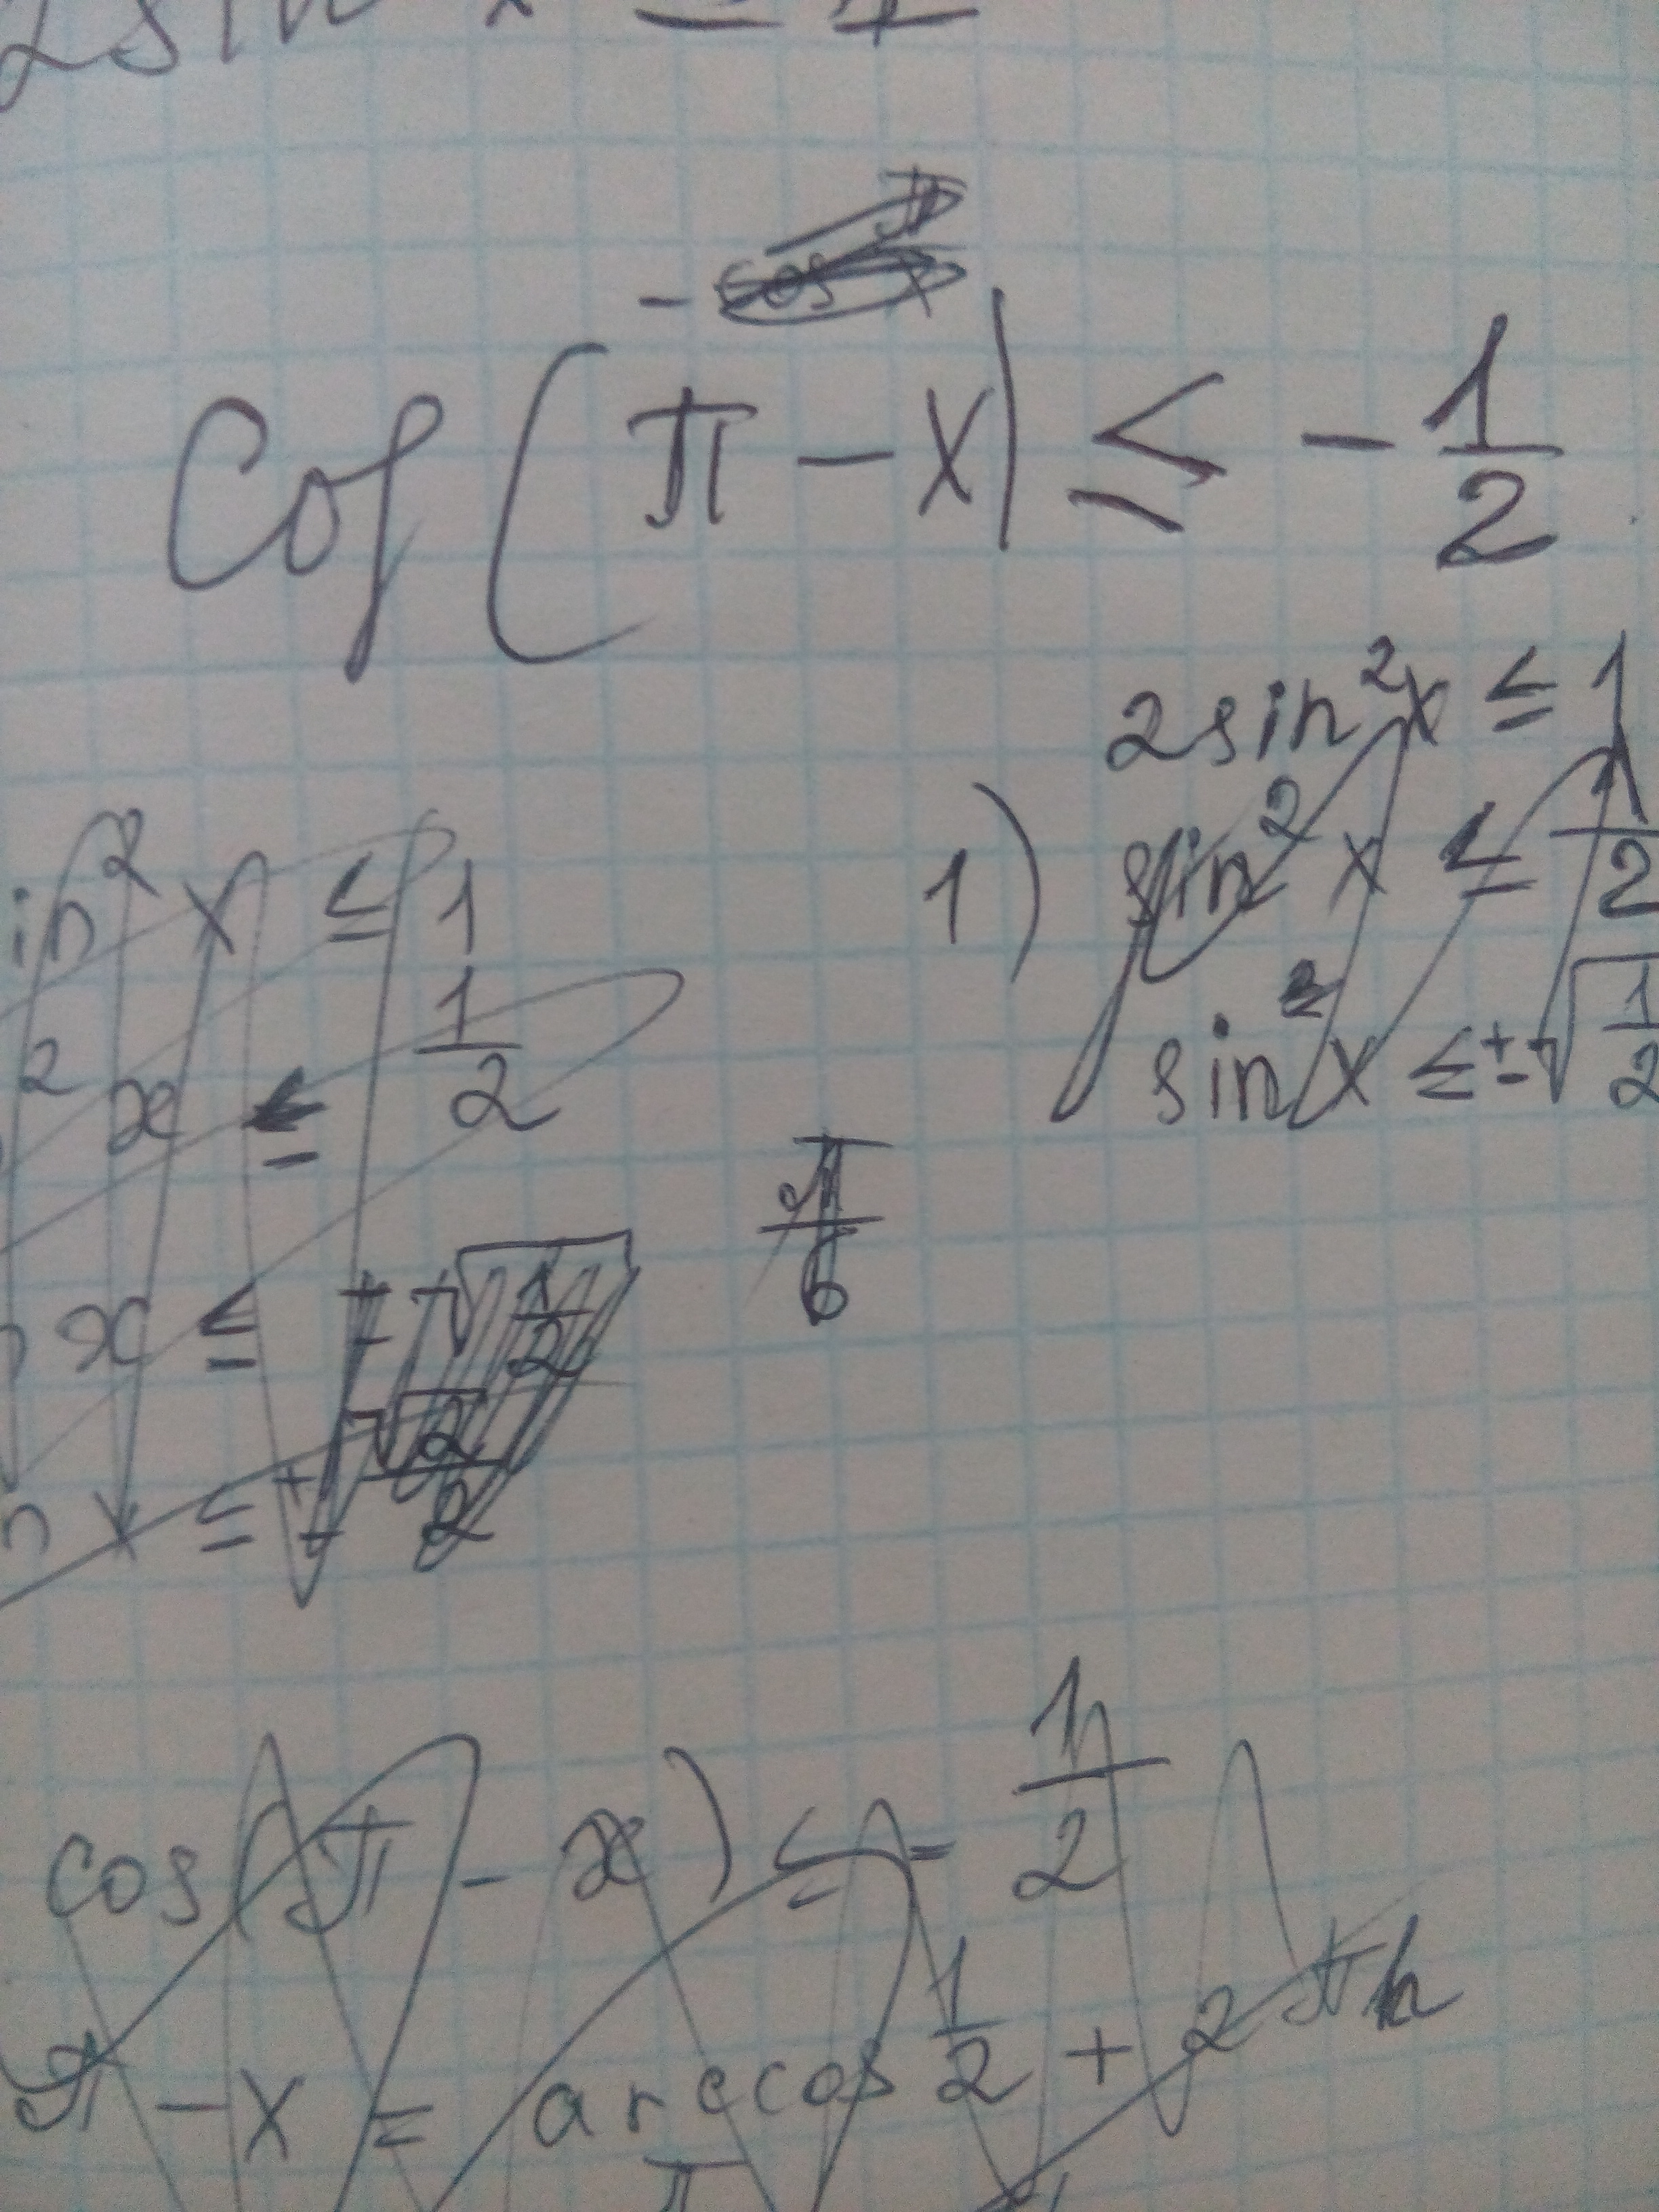 2sin x ≤ 1
- cos x
cos(π - x) ≤ - 1/2
2sin²x ≤ 1
1) sin² x ≤ 1/2
sin x ≤ ± √1/2
in² x ≤ 1
² x ≤ 1/2
π/6
x ≤ ± √1/2
n x ≤ ± √2/2
cos(π - x) ≤ - 1/2
π - x = arccos 1/2 + 2πn
π